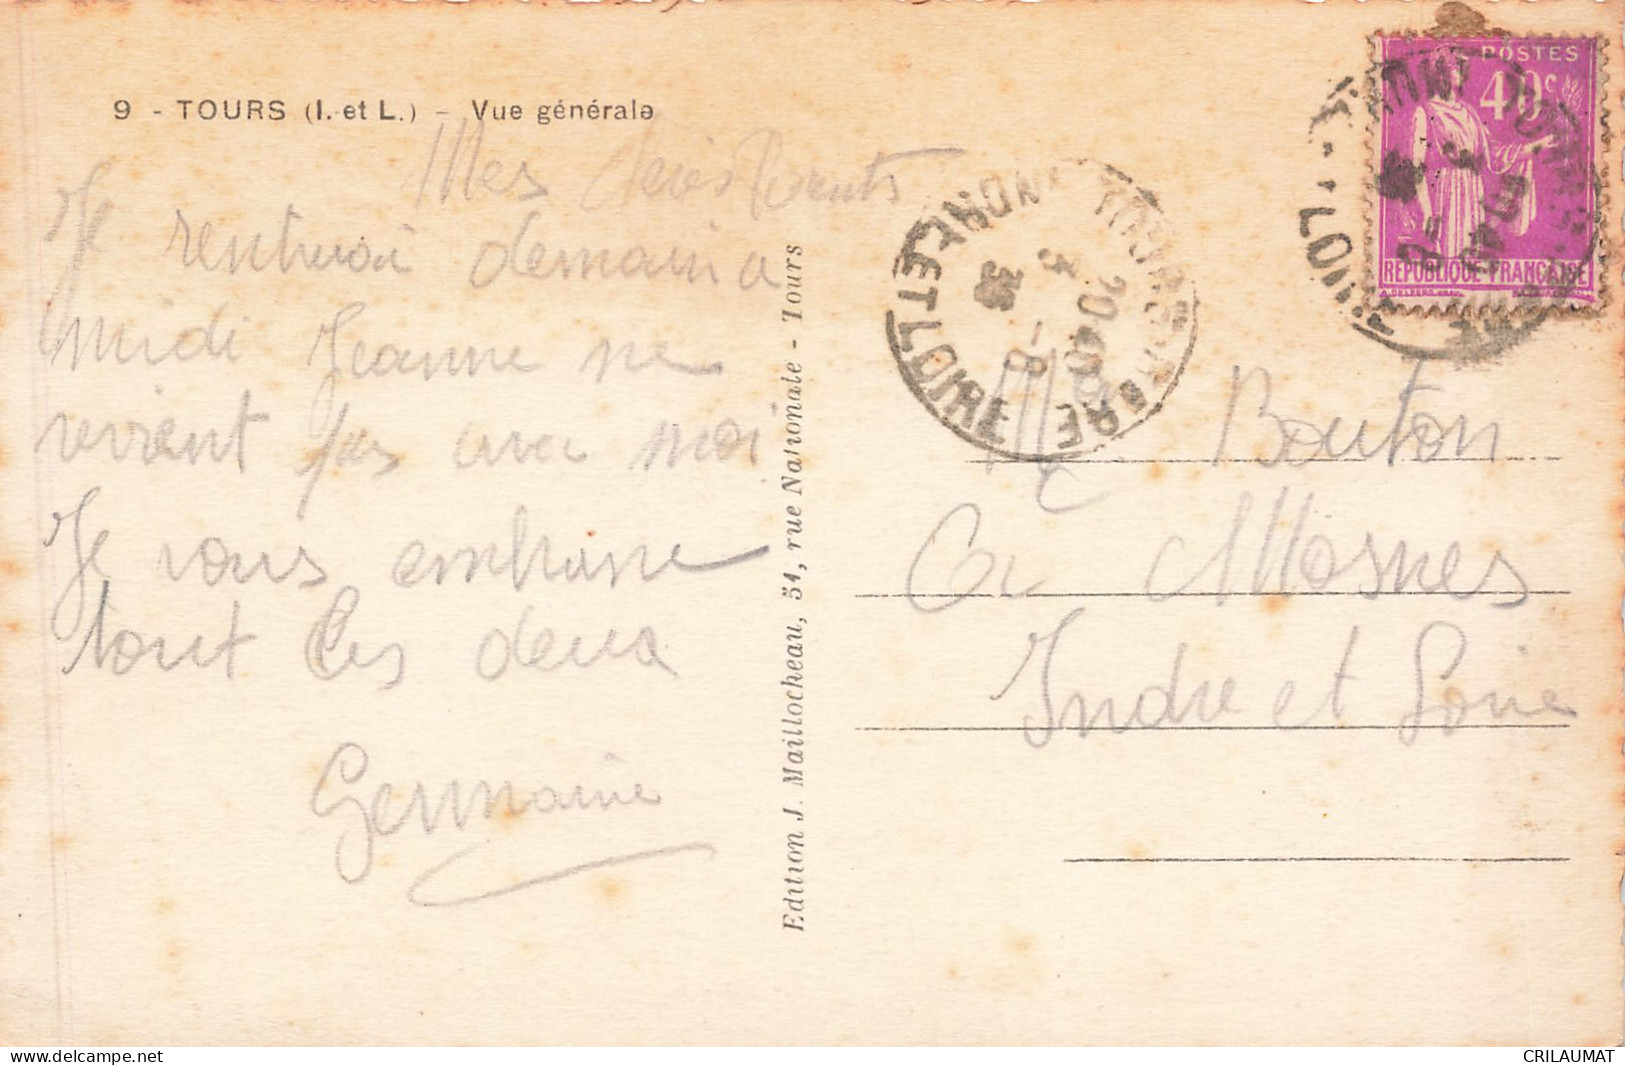 9 - TOURS (I. et L.) - Vue générale
Mes chers Parents
Je rentrerai demain a
midi Jeanne ne
revient pas avec moi
Je vous embrasse
tout les deux
Germaine
Edition J. Maillocheau, 51, rue Nationale - Tours
TOURS-GARE
INDRE ET LOIRE
20 40
3 - 8
36
POSTES
40c
REPUBLIQUE FRANÇAISE
Bouton
a Mosnes
Indre et Loire
delcampe.net
CRILAUMAT